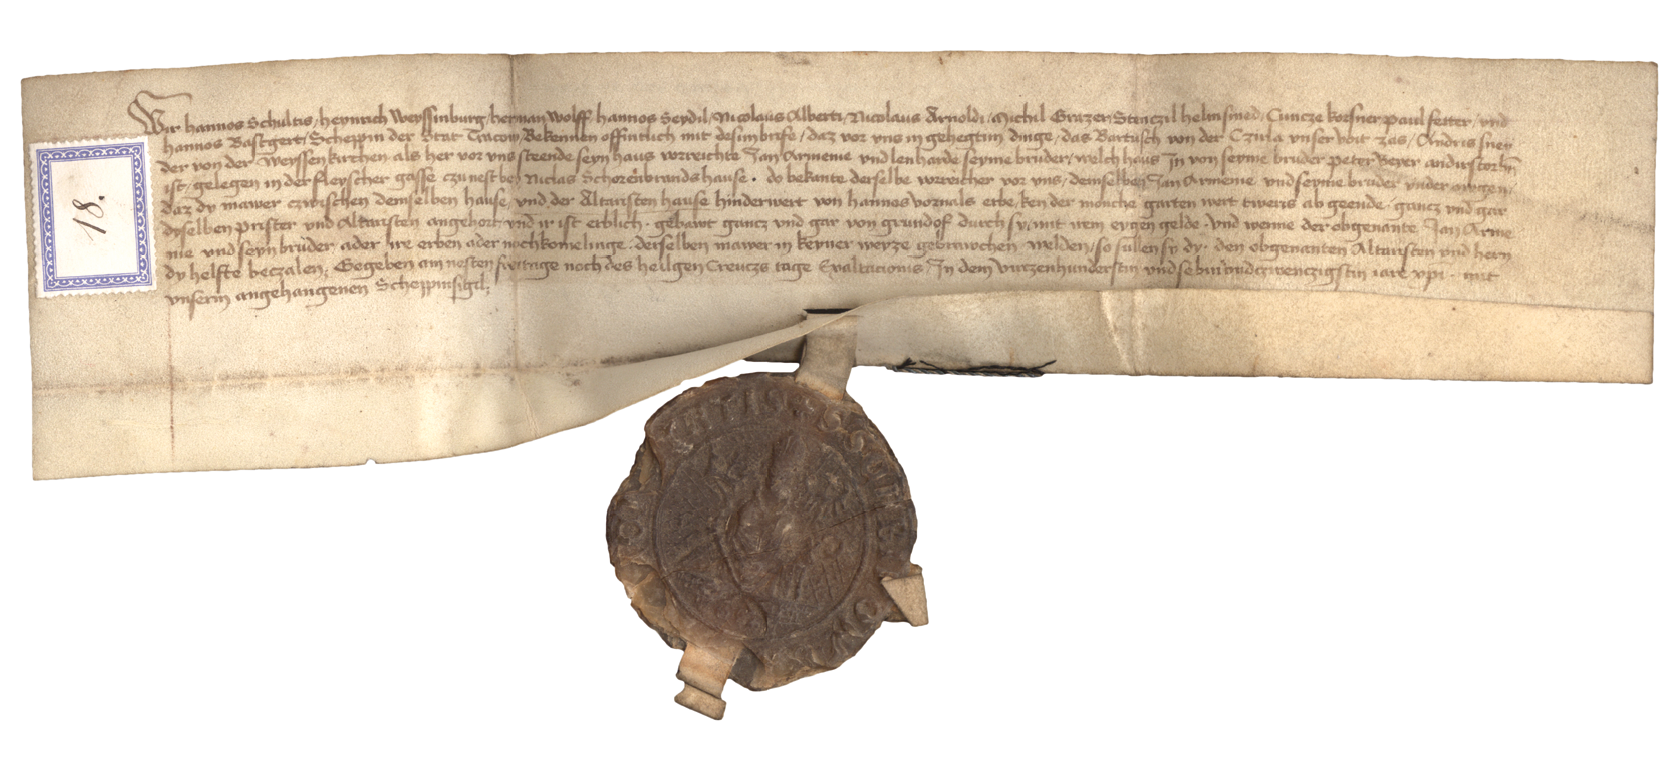 18.
Wir hannos Schultis, heynrich Weyssinburg, herman Wolff hannos Seydil, Nicolaus Alberti, Nicolaus Arnoldi, Michil Grazer Stenczil helmsmed, Cuncze koẜner paul fetter, vnd
hannos Bastgert, Scheppin der Stat Cracow, Bekennen offintlich mit desim brife, daz vor vns in gehegtim dinge, das Bartusch von der Czirla vnser voit zas, Andris sney
der von der Weyssenkirchen als her vor vns steende seyn haus vorreichte Jan Armenie vnd lenharde seyme bruder, welch haus In von seyme bruder peter Beyer andirstorbin
ist, gelegen in der fleyscher gasse czunest bey Niclas Schorenbrands hause. do bekante derselbe vorreicher vor vns, demselben Jan Armenie vnd seyme bruder vnder ougen,
daz dy mawer czwischen demselben hause, vnd der Altaristen hause hinderwert von hannos vornals erbe, ken der monche garten wert abgeende, gancz vnd gar
dyselben prister vnd Altaristen angehort vnd ir ist erblich, gebawt gancz vnd gar von grundof durch sy, mit eygen gelde, vnd wenne der obgenante Jan Arme
nie vnd seyn bruder ader ire erben ader nochkomelinge, derselben mawer in keyner weyze gebrawchen welden, so sullen sy dy den obgenanten Altaristen vnd hern
dy helfte beczalen, Gegeben am nesten freitage noch des heilgen Creuczs tage Exaltacionis In dem virczenhunderstin vnd jare xpi mit
vnserm angehangenen Scheppinsigil;